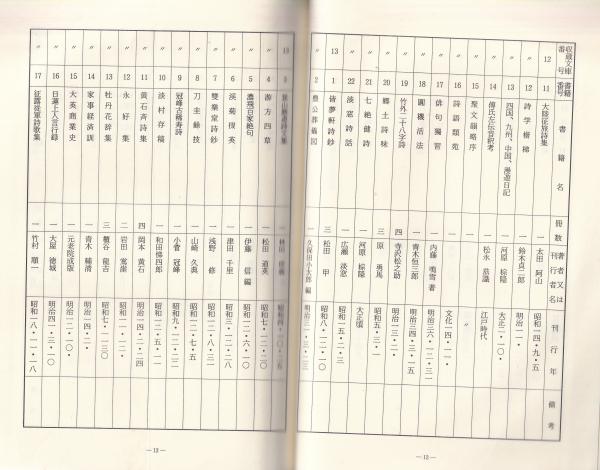 収蔵文庫番号 書籍番号 書籍名 冊数 著者又は刊行者名 刊行年 備考
12 11 大陸征旅詩集 一 太田 阿山 昭和一四・九・五
〃 12 詩学樹梯 一 鈴木貞二郎 明治一一・
〃 13 四国、九州、中国、漫遊日記 一 河原 棕隆 大正二・一〇・
〃 14 傅氏左伝音釈考 一 松永 江戸時代
〃 15 聚文韻略序 一 〃
〃 16 詩語類苑 一 文化一四・一一・
〃 17 俳句獨習 一 内藤 鳴雪 著 明治三六・一二・一
〃 18 圓機活法 一 青木恒三郎 明治三四・三・一五
〃 19 竹外二十八字詩 四 寺沢松之助 明治一三・二・
〃 20 郷土詩味 三 原 勇馬 昭和五・三・
〃 21 七絶健詩 一 河原 棕隆 大正頃
〃 22 淡窓詩話 一 広瀬 淡窓 昭和一五・二・三
13 1 皆夢軒詩鈔 三 松田 甲 昭和八・一〇・二〇
〃 2 豊公葬儀図 一 久保田小太郎 編
— 12 —
13 3
〃 4 游方四草 一 松田 道英 昭和七・一二・一〇
〃 5 濃飛百家絶句 一 伊藤 信 編 昭和一二・六・一〇
〃 6 渓菊
一 津田 千里 昭和三・一二・二八
〃 7 雙業堂詩鈔 一 浅野 修 昭和一二・八・三
〃 8 刀圭餘技 一 山崎 久眞 昭和一二・七・五
〃 9 冠峰古稀寿詩 一 小菅 冠峰 昭和九・一二・
〃 10 淡村存稿 一 和田悌四郎 昭和一五・一〇・
〃 11 黄石斉詩集 四 岡本 黄石 明治一四・二・四
〃 12 永好集 二 岩田 鶯崖 明治一一・一二・
〃 13 牡丹花辞集 三 櫃谷 龍吉 昭和七・一一・三〇
〃 14 家事経済訓 一 青木 輔清 明治一四・二・
〃 15 大英商業史 一 元老院版 明治一二・一〇・
〃 16 日蓮上人言行録 一 大屋 徳城 明治四一・三・一〇
〃 17 征露従軍詩歌集 一 竹村 順一 昭和八・一一・一八
— 13 —